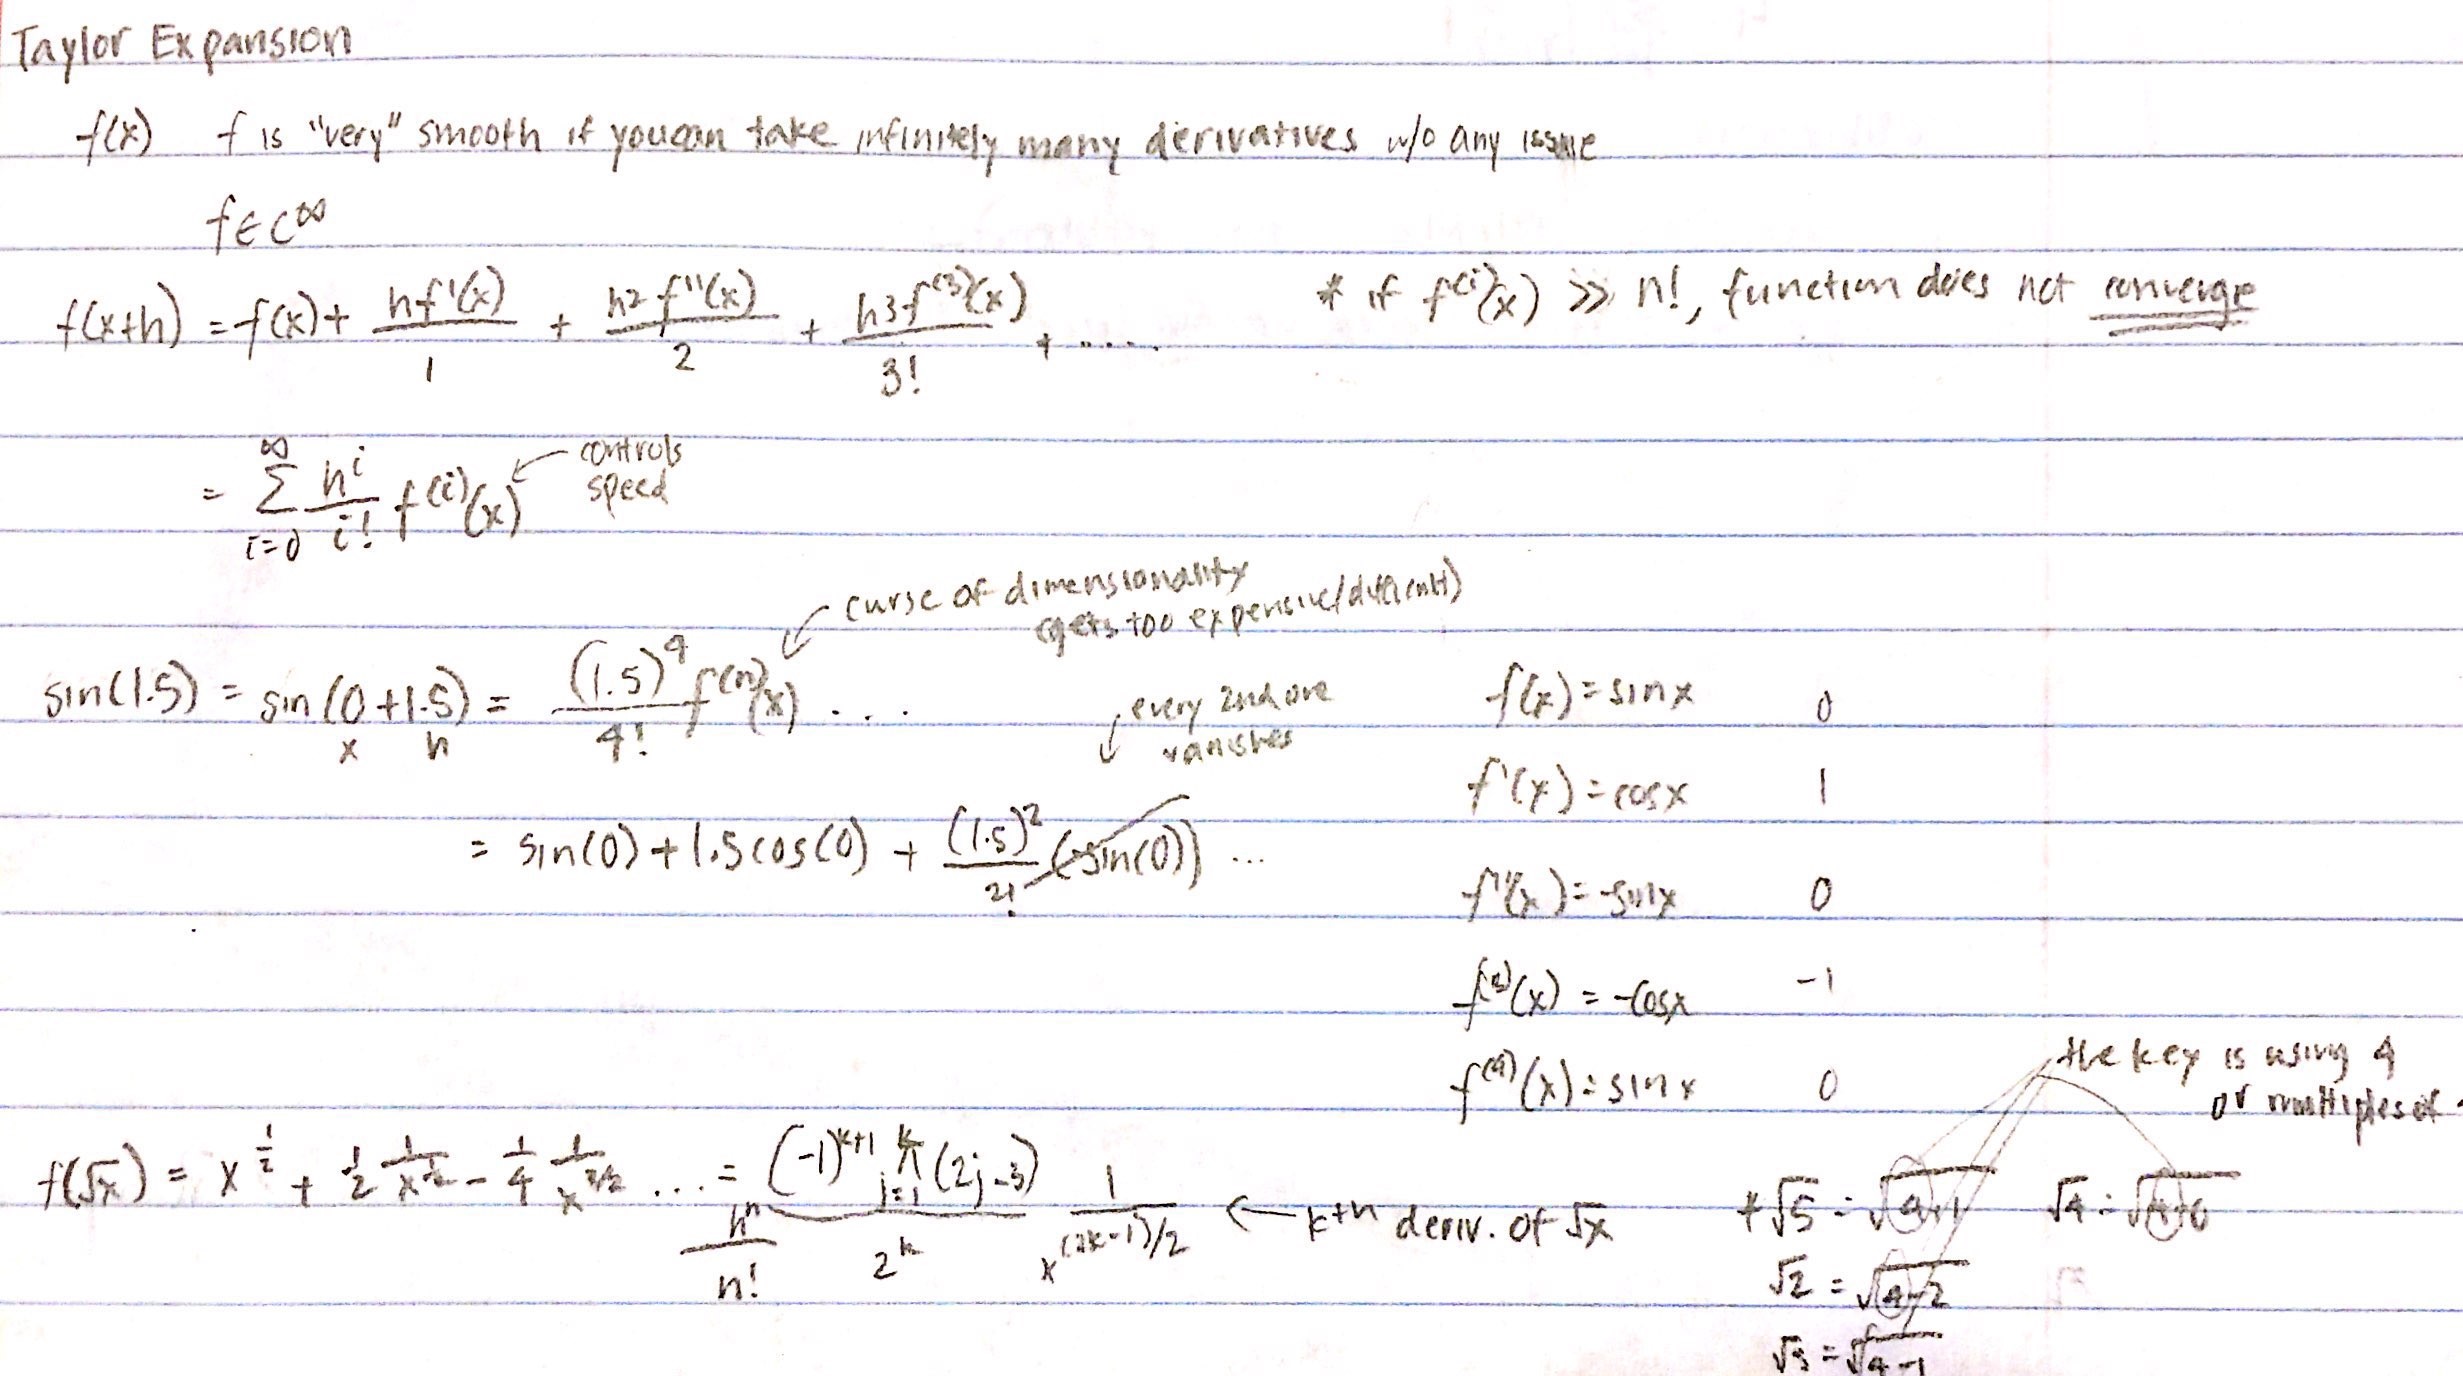 Taylor Expansion
f(x) f is "very" smooth if you can take infinitely many derivatives w/o any issue
f ∈ C^∞
f(x+h) = f(x) + hf'(x)/1 + h^2 f''(x)/2 + h^3 f^(3)(x)/3! + ..... * if f^(i)(x) >> n!, function does not converge
= ∑_{i=0}^{∞} h^i/i! f^(i)(x) ← controls speed
← curse of dimensionality
(gets too expensive/difficult)
sin(1.5) = sin(0+1.5) = (1.5)^4/4! f^(n)(x) ....
x h
↓ every 2nd one vanishes
= sin(0) + 1.5cos(0) + (1.5)^2/2! (-sin(0)) ...
f(x) = sin x 0
f'(x) = cos x 1
f''(x) = -sin x 0
f^(3)(x) = -cos x -1
f^(4)(x) = sin x 0
the key is using 4
or multiples of
f(√x) = x^{1/2} + 1/2 1/x^{1/2} - 1/4 1/x^{3/2} ... = h^n/n! (-1)^{k+1} ∏_{j=1}^{k} (2j-3)/2^k 1/x^{(2k-1)/2} ← kth deriv. of √x
* √5 = √4+1 √4 = √4+0
√2 = √4-2
√3 = √4-1